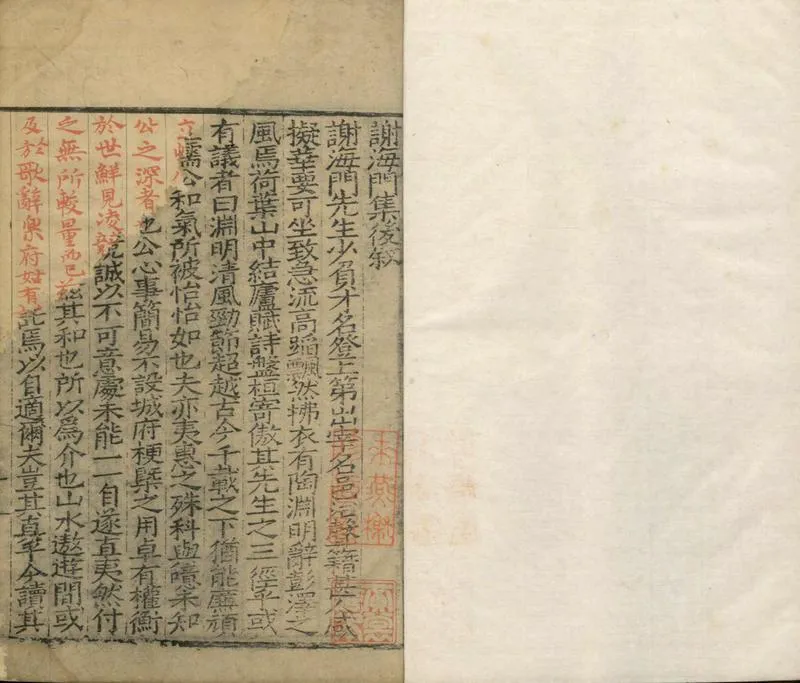 謝海門集後叙
謝海門先生少負才名登上第出宰名邑聲籍甚人咸
擬華要可坐致急流高蹈飄然拂衣有陶淵明辭彭澤之
風焉荷葉山中結廬賦詩盤桓寄傲其先生之三徑乎或
有議者曰淵明清風勁節超越古今千載之下猶能廉頑
立懦公和氣所被怡怡如也夫亦夷惠之殊科與嘻未知
公之深者也公心事簡易不設城府梗槩之用卓有權衡
於世鮮見凌競誠以不可意處未能一一自遂直夷然付
之無所較量而已茲其和也所以爲介也山水遨遊間或
及於歌辭樂府姑有託焉以自適爾夫豈其真乎今讀其